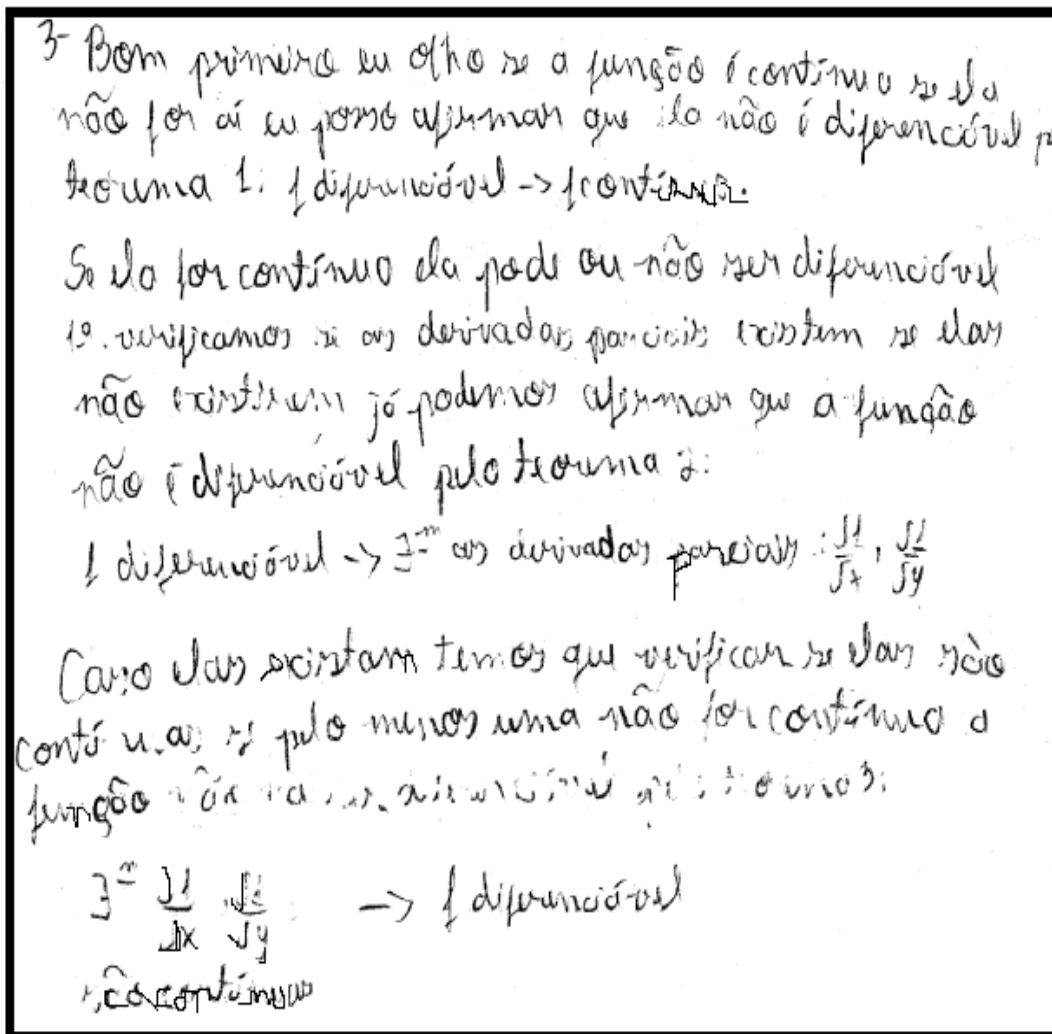 3- Bom primeiro eu olho se a função é contínua se ela
não for aí eu posso afirmar que ela não é diferenciável p
teorema 1: f diferenciável -> f contínua.
Se ela for contínua ela pode ou não ser diferenciável
1º. verificamos se as derivadas parciais existem se elas
não existirem já podemos afirmar que a função
não é diferenciável pelo teorema 2:
f diferenciável -> ∃m as derivadas parciais: ∂f/∂x, ∂f/∂y
Caso elas existam temos que verificar se elas são
contínuas se pelo menos uma não for contínua a
função não
∃m ∂f/∂x ∂f/∂y -> f diferenciável
são contínuas